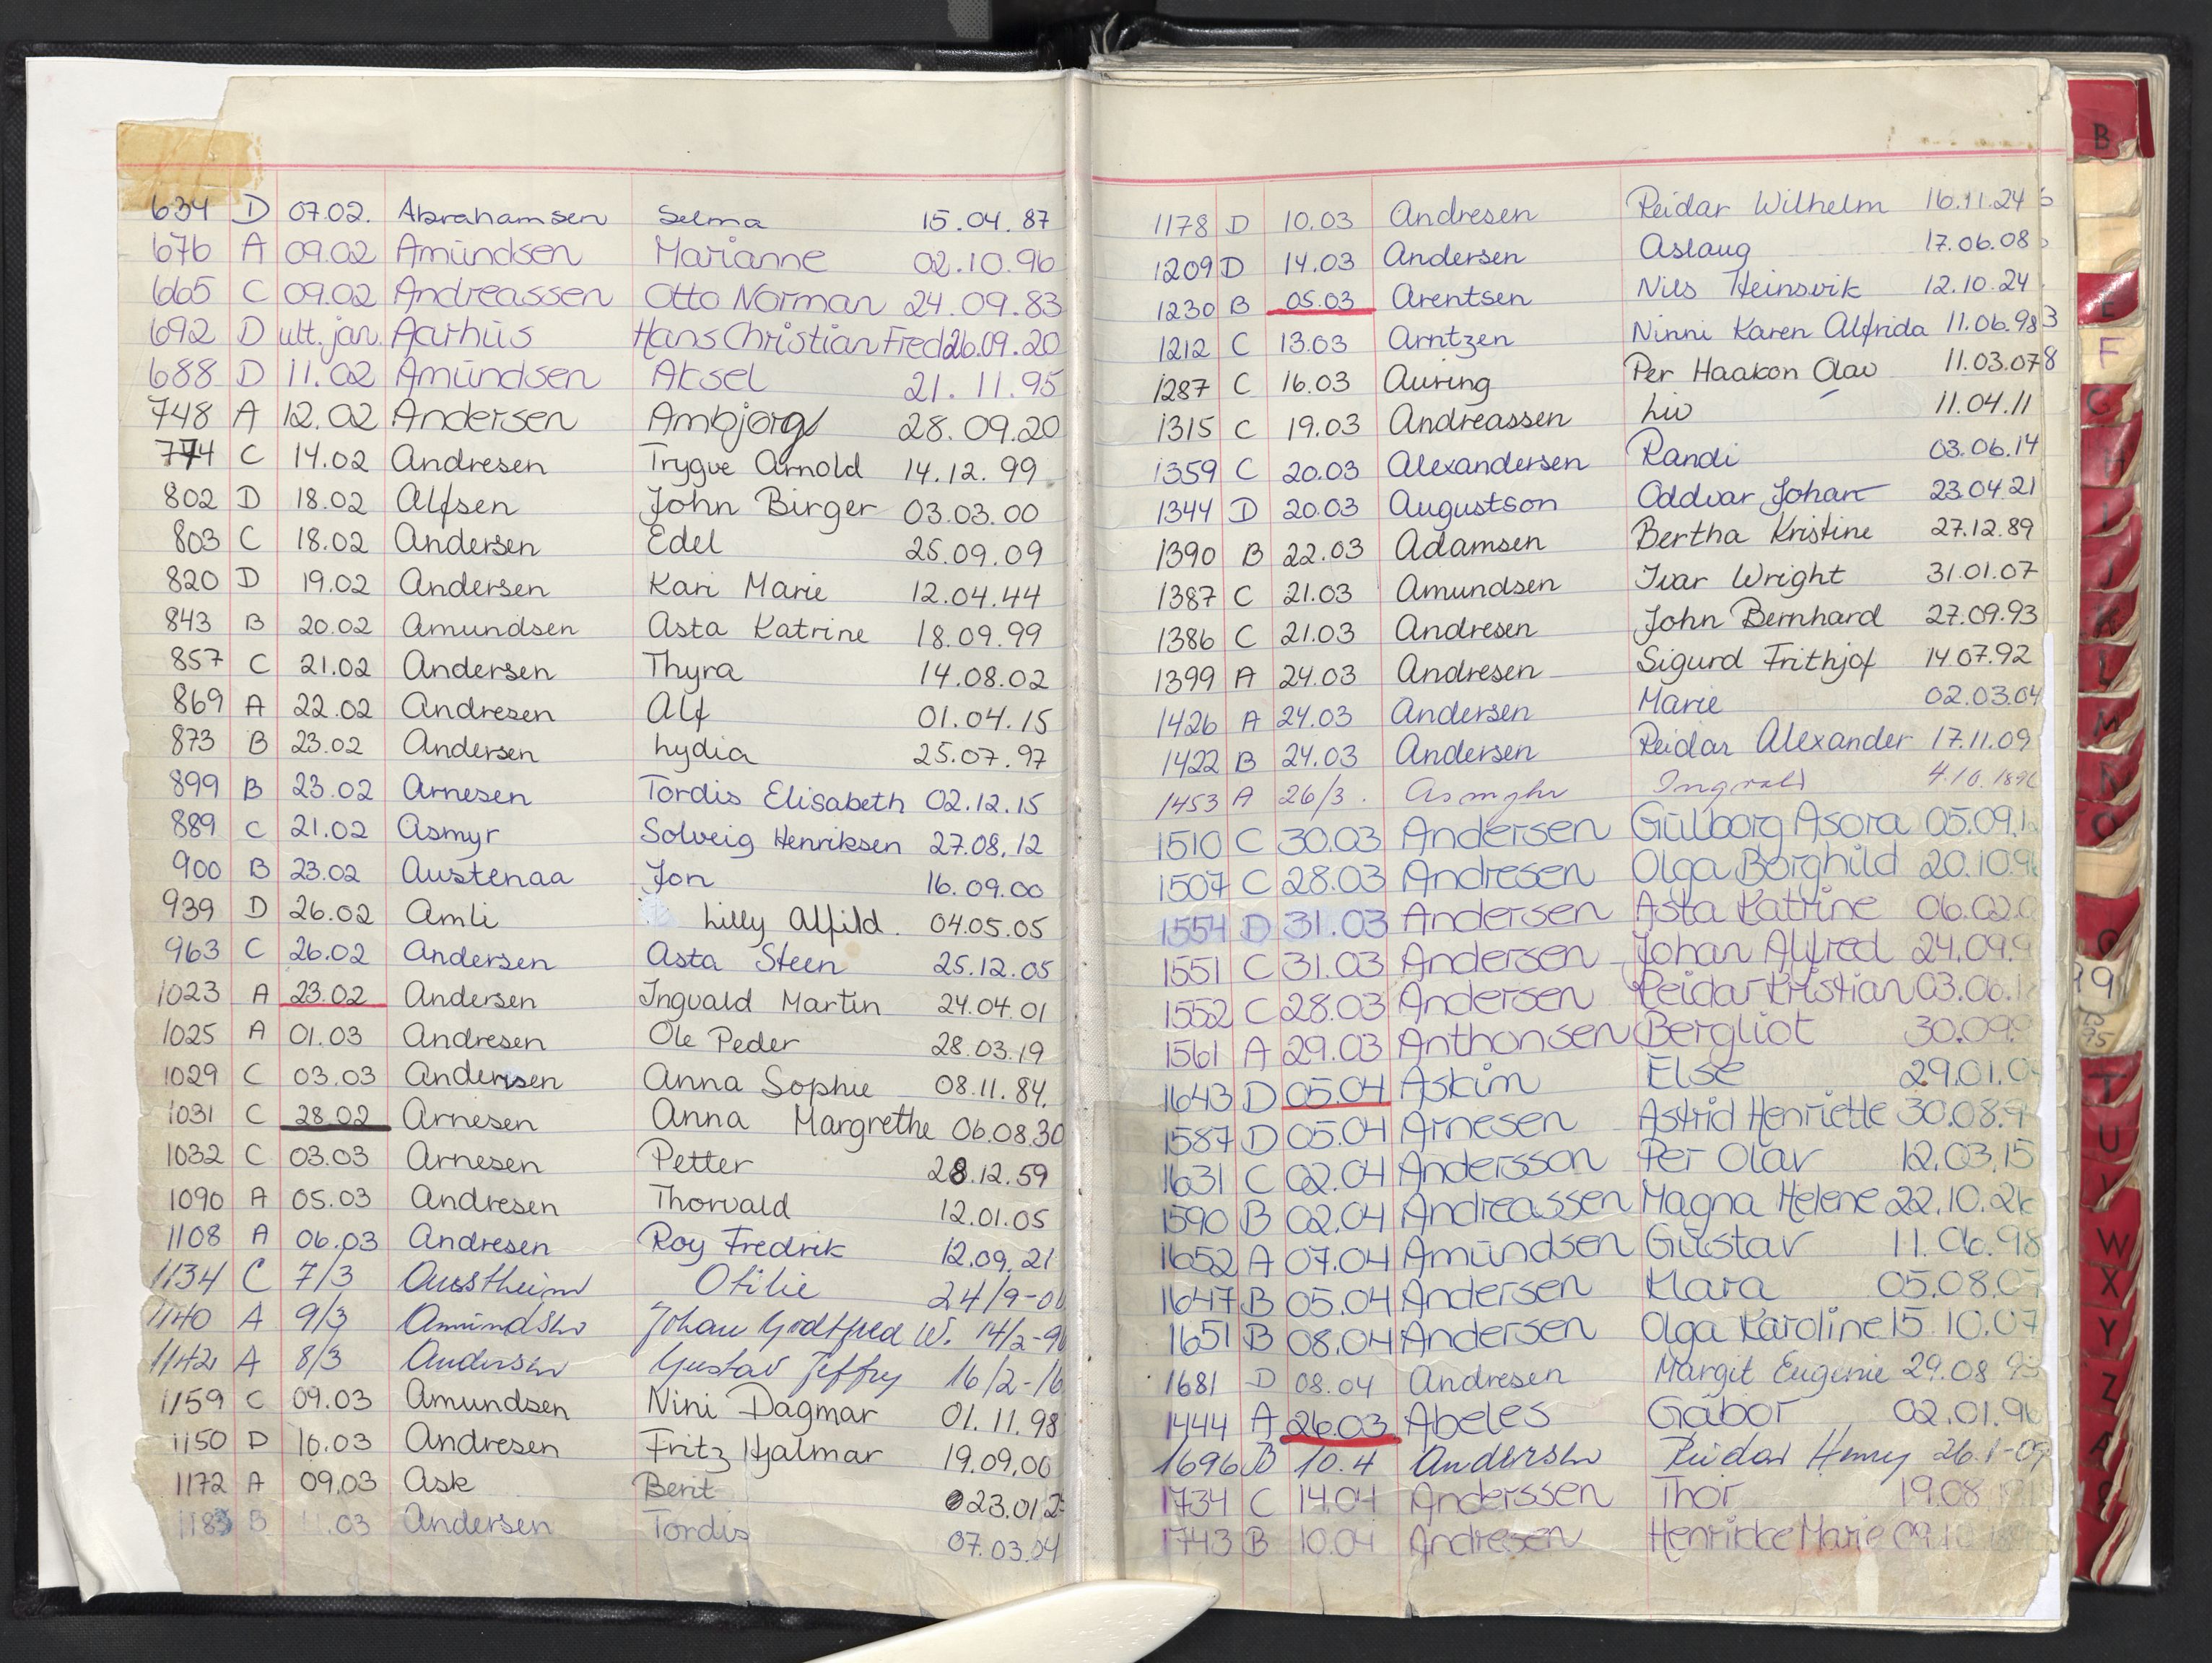 634 D 07.02. Abrahamsen Selma 15.04.87
676 A 09.02 Amündsen Marianne 02.10.96
665 C 09.02 Andreassen Otto Norman 24.09.83
692 D ult. jan. Aarhüs Hans Christian Fred 26.09.20
688 D 11.02 Amündsen Aksel 21.11.95
748 A 12.02 Andersen Ambjørg 28.09.20
774 C 14.02 Andresen Trygve Arnold 14.12.99
802 D 18.02 Alfsen John Birger 03.03.00
803 C 18.02 Andersen Edel 25.09.09
820 D 19.02 Andersen Kari Marie 12.04.44
843 B 20.02 Amundsen Asta Katrine 18.09.99
857 C 21.02 Andersen Thyra 14.08.02
869 A 22.02 Andresen Alf 01.04.15
873 B 23.02 Andersen Lydia 25.07.97
899 B 23.02 Arnesen Tordis Elisabeth 02.12.15
889 C 21.02 Asmyr Solveig Henriksen 27.08.12
900 B 23.02 Austenaa Jon 16.09.00
939 D 26.02 Amli Lilly Alfild. 04.05.05
963 C 26.02 Andersen Asta Steen 25.12.05
1023 A 23.02 Andersen Ingvald Martin 24.04.01
1025 A 01.03 Andresen Ole Peder 28.03.19
1029 C 03.03 Andersen Anna Sophie 08.11.84.
1031 C 28.02 Arnesen Anna Margrethe 06.08.30
1032 C 03.03 Arnesen Petter 28.12.59
1090 A 05.03 Andresen Thorvald 12.01.05
1108 A 06.03 Andresen Roy Fredrik 12.09.21
1134 C 7/3 Ausstheim Otilie 24/9-00
1140 A 9/3 Amundsen Johan Godtfred W. 14/2-90
1142 A 8/3 Andersen Gustav Jeffry 16/2-16
1159 C 09.03 Amundsen Nini Dagmar 01.11.98
1150 D 10.03 Andresen Fritz Hjalmar 19.09.00
1172 A 09.03 Ask Berit 23.01.2
1183 B 11.03 Andersen Tordis 07.03.04
1178 D 10.03 Andresen Reidar Wilhelm 16.11.24
1209 D 14.03 Andersen Aslaug 17.06.08
1230 B 05.03 Arentsen Nils Heinsvik 12.10.24
1212 C 13.03 Arntzen Ninni Karen Alfrida 11.06.98
1287 C 16.03 Auring Per Haakon Olav 11.03.07
1315 C 19.03 Andreassen Liv 11.04.11
1359 C 20.03 Alexandersen Randi 03.06.14
1344 D 20.03 Augustson Oddvar Johan 23.04.21
1390 B 22.03 Adamsen Bertha Kristine 27.12.89
1387 C 21.03 Amundsen Ivar Wright 31.01.07
1386 C 21.03 Andresen John Bernhard 27.09.93
1399 A 24.03 Andresen Sigurd Frithjof 14.07.92
1426 A 24.03 Andersen Marie 02.03.04
1422 B 24.03 Andersen Reidar Alexander 17.11.09
1453 A 26/3. Ingvald 4.10.
1510 C 30.03 Andersen Gülborg Asora 05.09.1
1507 C 28.03 Andresen Olga Borghild 20.10.9
1554 D 31.03 Andersen Asta Katrine 06.02.0
1551 C 31.03 Andersen Johan Alfred 24.09.9
1552 C 28.03 Andersen Reidar Kristian 03.06.1
1561 A 29.03 Anthonsen Bergliot 30.09.9
1643 D 05.04 Askim Else 29.01.0
1587 D 05.04 Arnesen Astrid Henriette 30.08.9
1631 C 02.04 Andersson Per Olav 12.03.15
1590 B 02.04 Andreassen Magna Helene 22.10.2
1652 A 07.04 Amündsen Güstav 11.06.98
1647 B 05.04 Andersen Klara 05.08.0
1651 B 08.04 Andersen Olga Karoline 15.10.07
1681 D 08.04 Andresen Margit Eugenie 29.08.93
1444 A 26.03 Abeles Gábor 02.01.9
1696 B 10.4 Andersen Reidar Henry 26.1-09
1734 C 14.04 Anderssen Thor 19.08
1743 B 10.04 Andresen Henrikke Marie 09.1
B
E
F
G
H
I
J
K
L
M
N
O
T
U
V
W
X
Y
Z